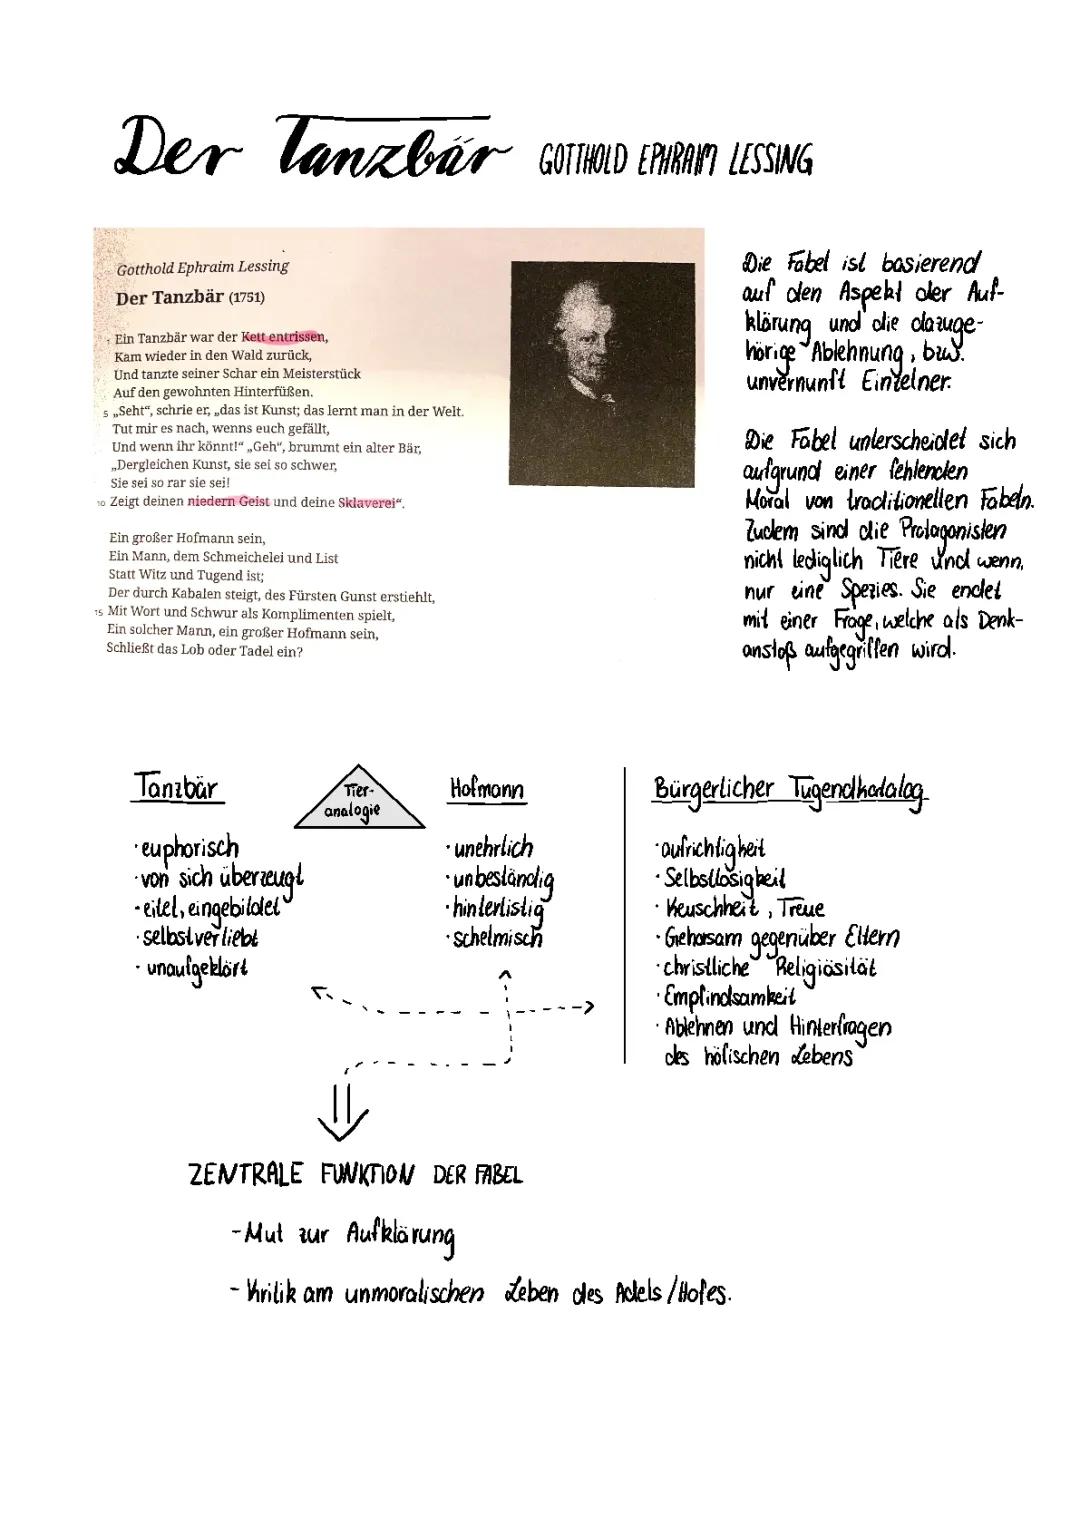 Der Tanzbär GOTTHOLD EPHRAIM LESSING
Gotthold Ephraim Lessing
Der Tanzbär (1751)
1 Ein Tanzbär war der Kett entrissen,
Kam wieder in den Wald zurück,
Und tanzte seiner Schar ein Meisterstück
Auf den gewohnten Hinterfüßen.
5 „Seht“, schrie er, „das ist Kunst; das lernt man in der Welt.
Tut mir es nach, wenns euch gefällt,
Und wenn ihr könnt!“ „Geh“, brummt ein alter Bär,
„Dergleichen Kunst, sie sei so schwer,
Sie sei so rar sie sei!
10 Zeigt deinen niedern Geist und deine Sklaverei“.
Ein großer Hofmann sein,
Ein Mann, dem Schmeichelei und List
Statt Witz und Tugend ist;
Der durch Kabalen steigt, des Fürsten Gunst erstiehlt,
15 Mit Wort und Schwur als Komplimenten spielt,
Ein solcher Mann, ein großer Hofmann sein,
Schließt das Lob oder Tadel ein?
Die Fabel ist basierend
auf den Aspekt der Auf-
klärung und die dazuge-
hörige Ablehnung, bzw.
unvernunft Einzelner.
Die Fabel unterscheidet sich
aufgrund einer fehlenden
Moral von traditionellen Fabeln.
Zudem sind die Protagonisten
nicht lediglich Tiere und wenn,
nur eine Spezies. Sie endet
mit einer Frage, welche als Denk-
anstoß aufgegriffen wird.
Tanzbär
· euphorisch
· von sich überzeugt
· eitel, eingebildet
· selbstverliebt
· unaufgeklärt
Tier-
analogie
Hofmann
· unehrlich
· unbeständig
· hinterlistig
· schelmisch
Bürgerlicher Tugendkatalog
· aufrichtigkeit
· Selbstlosigkeit
· Keuschheit, Treue
· Gehorsam gegenüber Eltern
· christliche Religiösität
· Empfindsamkeit
· Ablehnen und Hinterfragen
des höfischen Lebens
ZENTRALE FUNKTION DER FABEL
- Mut zur Aufklärung
- Kritik am unmoralischen Leben des Adels/Hofes.